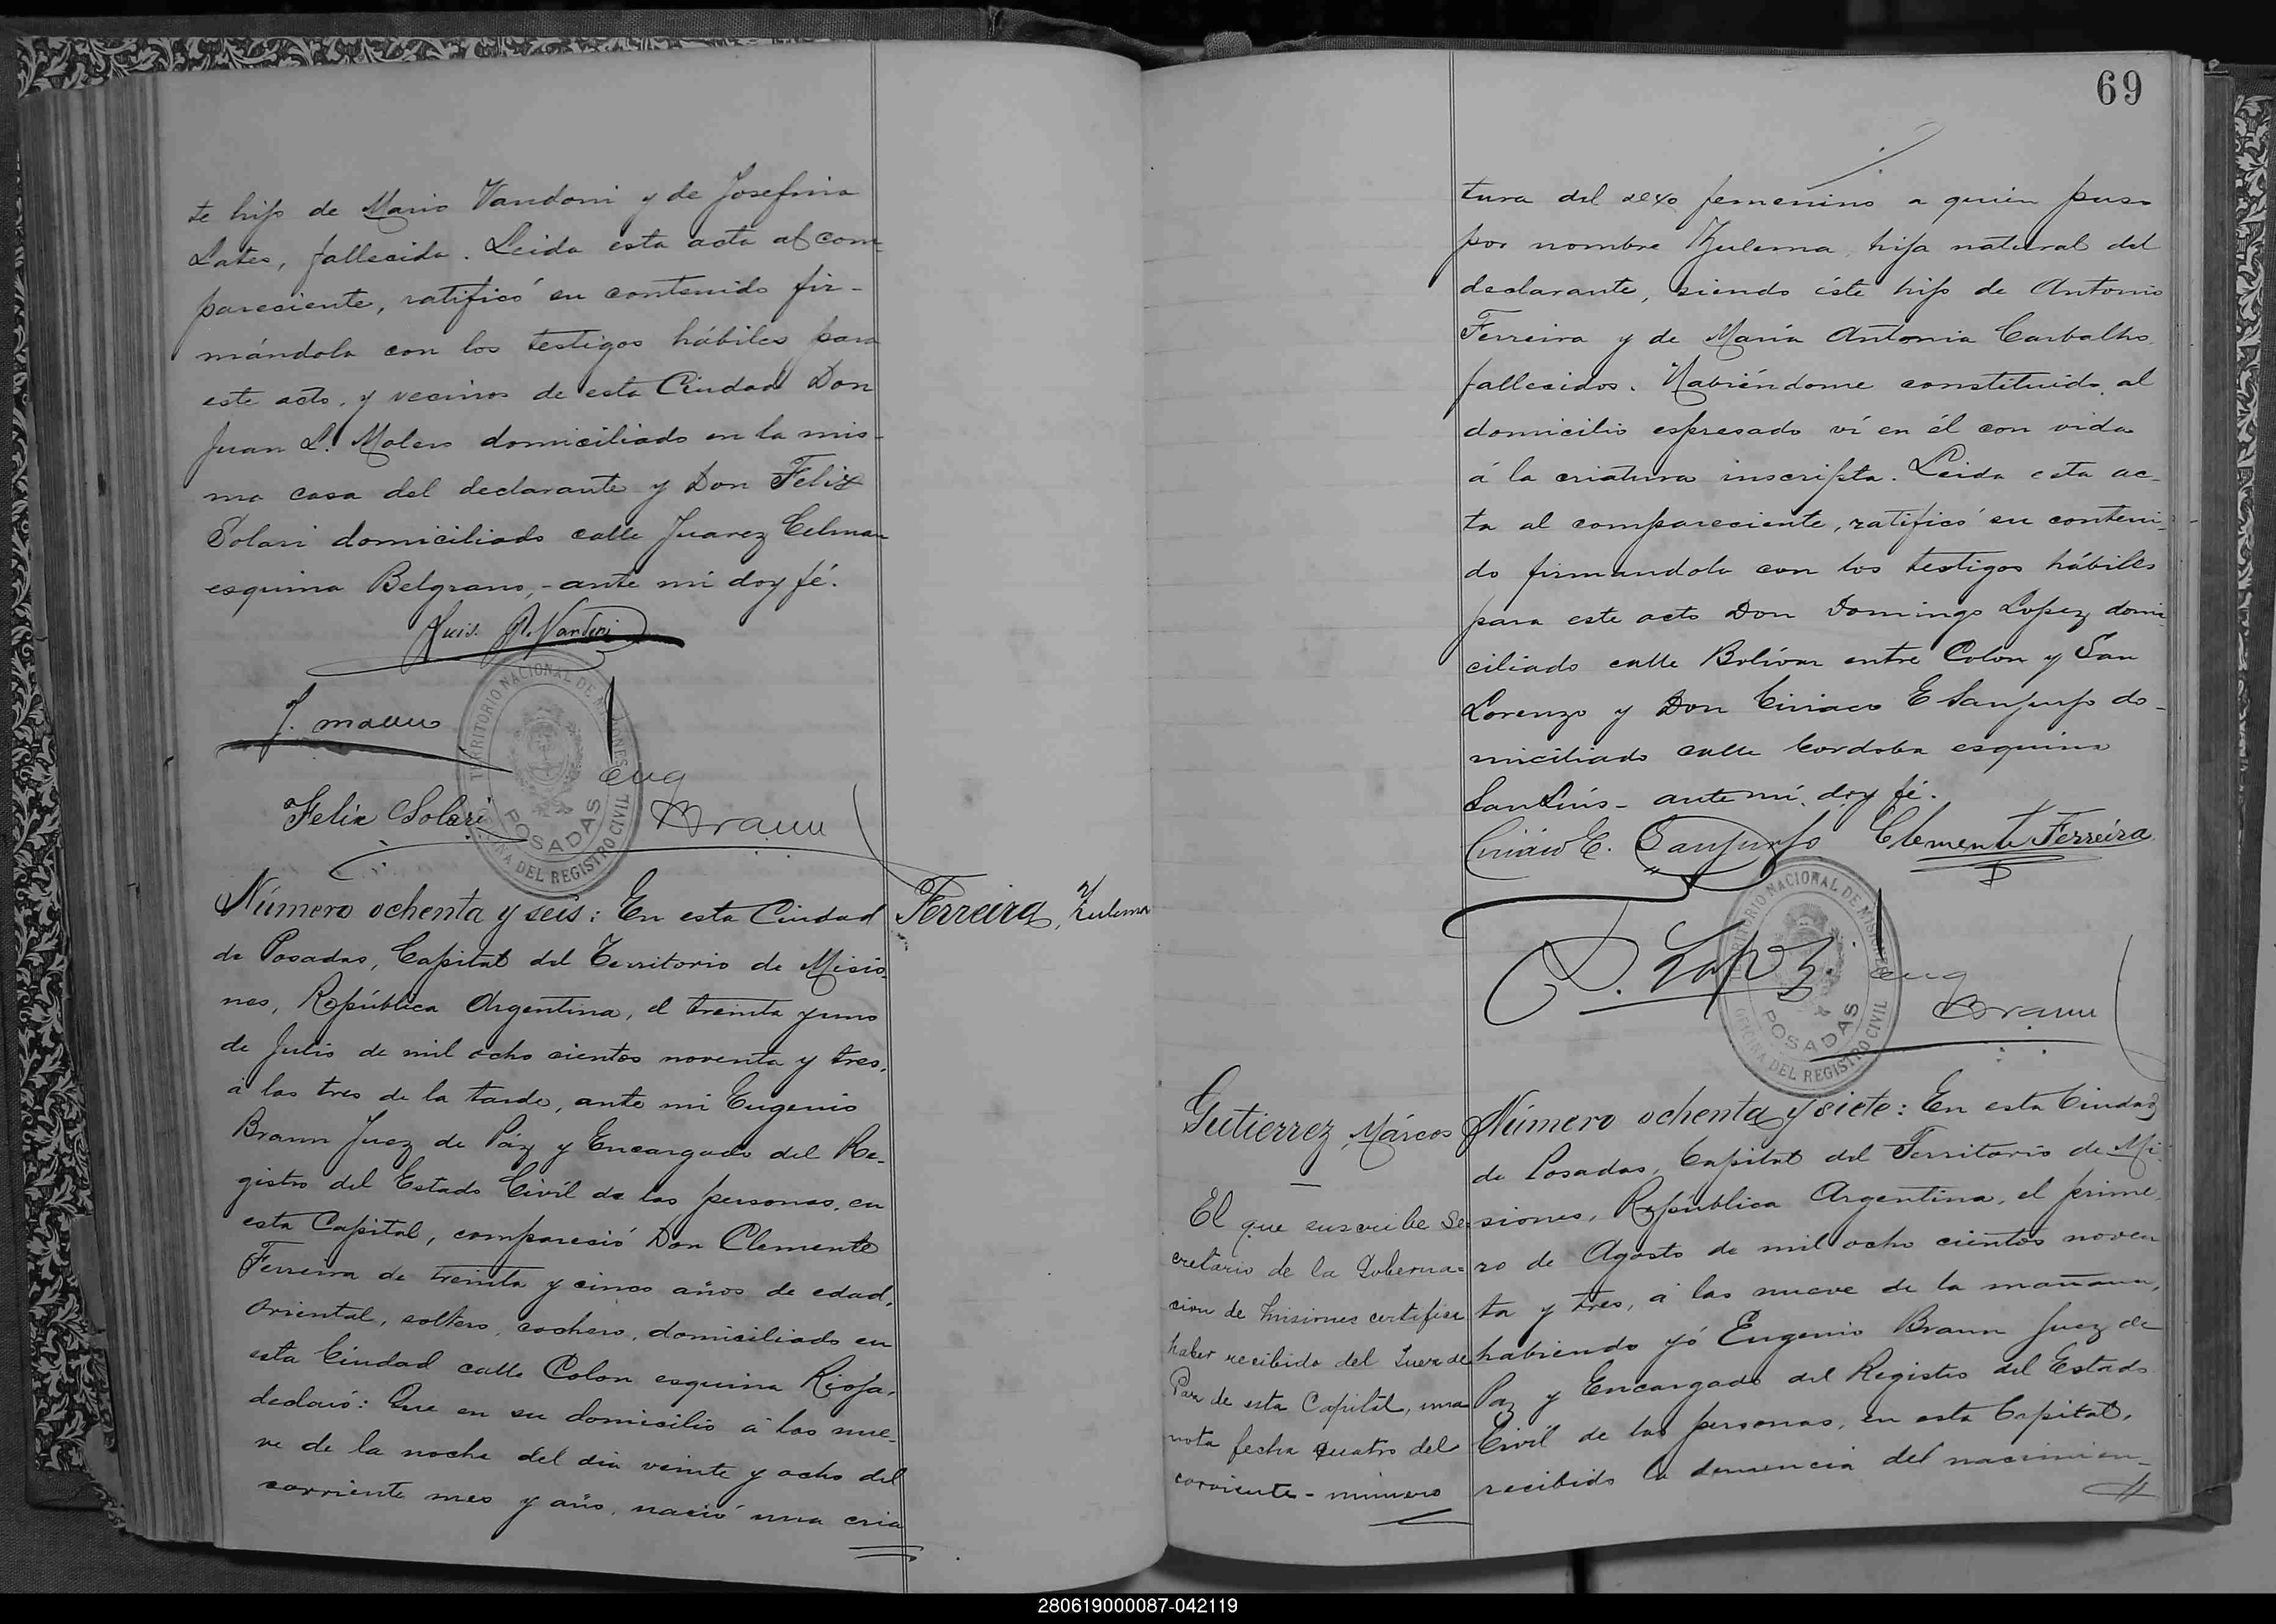 te hijo de Mario Vandoni y de Josefina
Lates, fallecida. Leida esta acta al com-
pareciente, ratificó su contenido fir-
mándola con los testigos hábiles para
este acto, y vecinos de esta Ciudad Don
Juan L. Molero domiciliado en la mis-
ma casa del declarante y Don Felix
Solari domiciliado calle Juarez Celman
esquina Belgrano, - ante mi doy fé.
Luis P. Vandoni
TERRITORIO NACIONAL DE MISIONES
Felix Solari
Eug
Braun
POSADAS
OFICINA DEL REGISTRO CIVIL
Ferreira, Zulema
Número ochenta y seis: En esta Ciudad
de Posadas, Capital del Territorio de Misio-
nes, República Argentina, el treinta y uno
de Julio de mil ocho cientos noventa y tres,
á las tres de la tarde, ante mi Eugenio
Braun Juez de Páz y Encargado del Re-
gistro del Estado Civil de las personas, en
esta Capital, compareció Don Clemente
Ferreira de treinta y cinco años de edad,
oriental, soltero, cochero, domiciliado en
esta Ciudad calle Colon esquina Rioja,
declaró: Que en su domicilio á las nue-
ve de la noche del dia veinte y ocho del
corriente mes y año, nació una cria
69
tura del sexo femenino a quien puso
por nombre Zulema, hija natural del
declarante, siendo éste hijo de Antonio
Ferreira y de María Antonia Carbalho
fallecidos. Habiéndome constituido al
domicilio espresado ví en él con vida
á la criatura inscripta. Leida esta ac-
ta al compareciente, ratificó su conteni-
do firmandola con los testigos hábiles
para este acto Don Domingo Lopez domi-
ciliado calle Bolívar entre Colon y San
Lorenzo y Don Ciriaco E Sanjurjo do-
miciliado calle Cordoba esquina
San Luis - ante mí, doy fé.
Ciriaco E. Sanjurjo Clemente Ferreira
D. Lopez
TERRITORIO NACIONAL DE MISIONES
Eug
Braun
POSADAS
OFICINA DEL REGISTRO CIVIL
Gutierrez, Márcos
El que suscribe Se-
cretario de la Goberna-
cion de Misiones certifica
haber recibido del Juez de
Paz de esta Capital, una
nota fecha cuatro del
corriente - número
Número ochenta y siete: En esta Ciudad
de Posadas, Capital del Territorio de Mi-
siones, República Argentina, el prime-
ro de Agosto de mil ocho cientos noven
ta y tres, á las nueve de la mañana,
habiendo yó Eugenio Braun Juez de
Paz y Encargado del Registro del Estado
Civil de las personas, en esta Capital,
recibido la denuncia del nacimien-
280619000087-042119